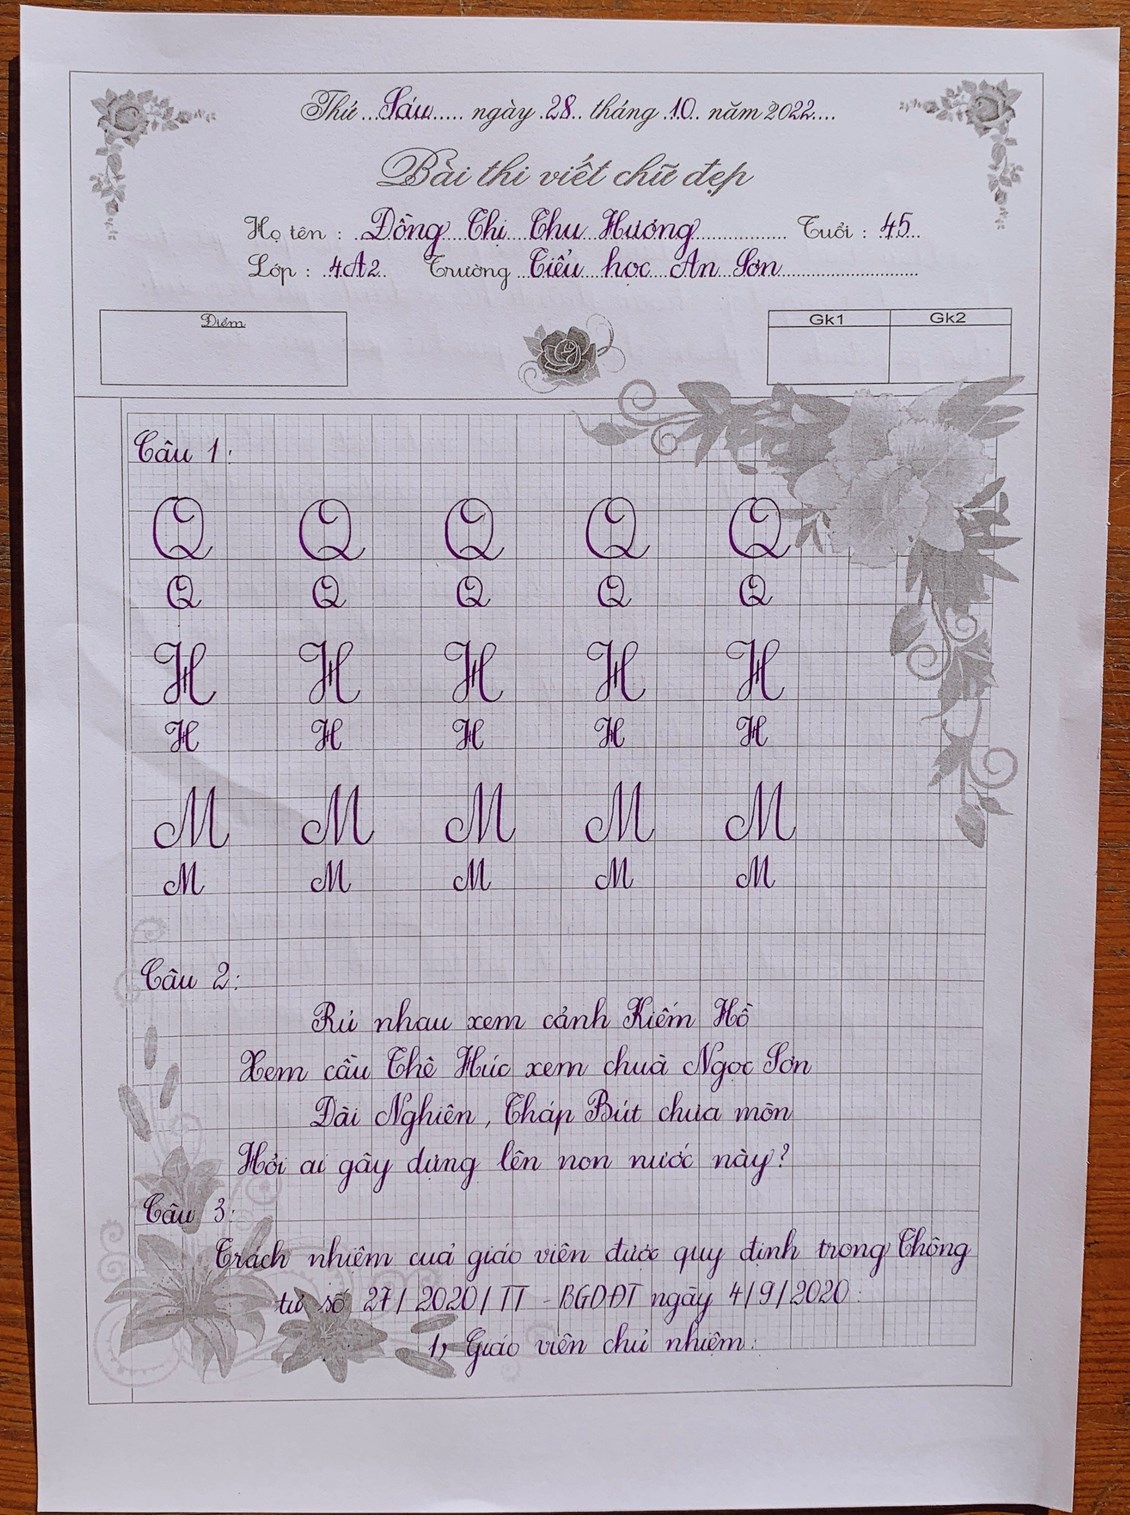 Thứ ...Sáu..... ngày .28.. tháng .10.. năm 2022....
Bài thi viết chữ đẹp
Họ tên : ..Đồng Thị Thu Hương................ Tuổi : .45..
Lớp : .4A2. Trường Tiểu học An Sơn........................
Điểm
Gk1 Gk2
Câu 1:
Q Q Q Q Q
Q Q Q Q Q
H H H H H
H H H H H
M M M M M
M M M M M
Câu 2:
Rủ nhau xem cảnh Kiếm Hồ
Xem cầu Thê Húc xem chuà Ngọc Sơn
Đài Nghiên, Tháp Bút chưa mòn
Hỏi ai gây dựng lên non nước này?
Câu 3:
Trách nhiệm cuả giáo viên được quy định trong Thông
tư số 27/2020/TT - BGDĐT ngày 4/9/2020
1, Giáo viên chủ nhiệm: